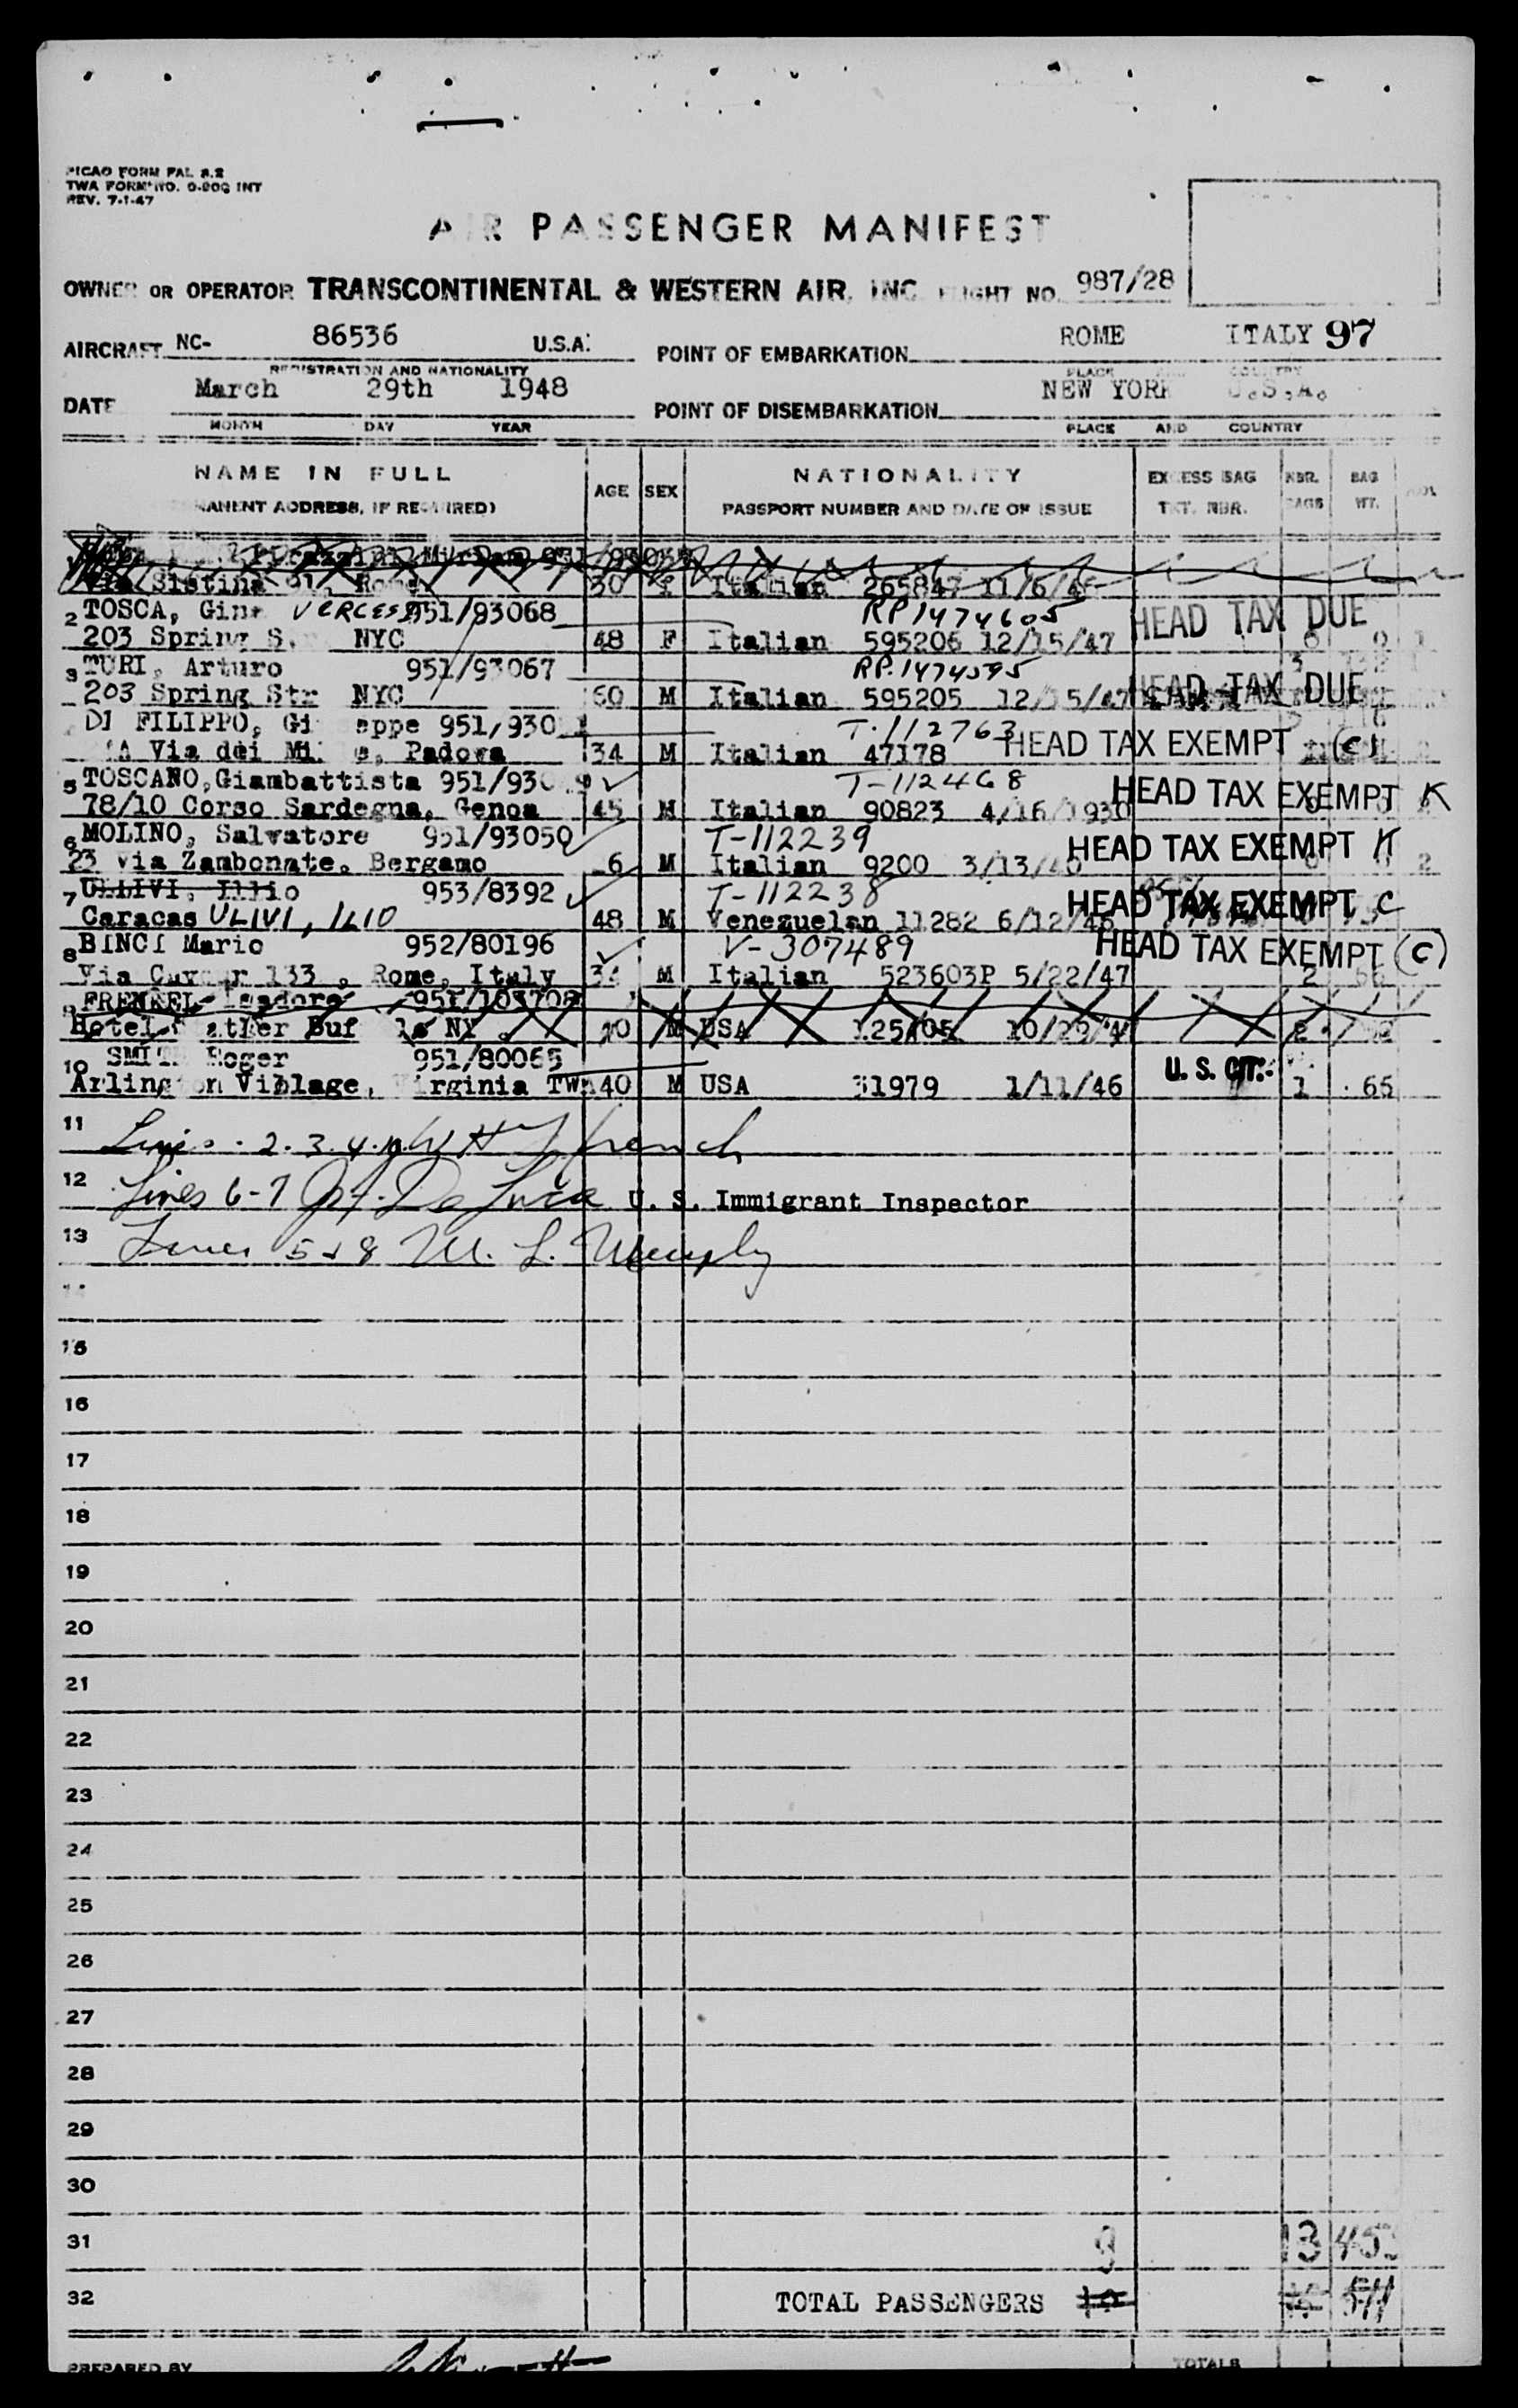 PICAO FORM PAL 8.2
TWA FORM NO. INT
REV. 7-1-47
AIR PASSENGER MANIFEST
OWNER OR OPERATOR TRANSCONTINENTAL & WESTERN AIR, INC. FLIGHT NO. 987/28
AIRCRAFT NC- 86536 U.S.A. POINT OF EMBARKATION ROME ITALY 97
REGISTRATION AND NATIONALITY PLACE AND COUNTRY
DATE March 29th 1948 POINT OF DISEMBARKATION NEW YORK U.S.A.
MONTH DAY YEAR PLACE AND COUNTRY
NAME IN FULL AGE SEX NATIONALITY EXCESS BAG NBR. BAG
(PERMANENT ADDRESS, IF REQUIRED) PASSPORT NUMBER AND DATE OF ISSUE TKT. NBR. BAGS WT.
Via Sistina Rome 30 Italian 265847 11/6/
2 TOSCA, Gina VERCESI 951/93068 RP1474605 HEAD TAX DUE
203 Spring S. NYC 48 F Italian 595206 12/15/47
3 TURI, Arturo 951/93067 RP.1474595
203 Spring Str NYC 60 M Italian 595205 12/15/47 HEAD TAX DUE
DI FILIPPO, Gi eppe 951/930 T-112763 HEAD TAX EXEMPT (C)
Via dei Mi Padova 34 M Italian 47178
5 TOSCANO, Giambattista 951/93 T-112468 HEAD TAX EXEMPT K
78/10 Corso Sardegna, Genoa 45 M Italian 90823 4/16/1930
6 MOLINO, Salvatore 951/93050 T-112239 HEAD TAX EXEMPT K
23 via Zambonate, Bergamo 6 M Italian 9200 3/13/ 2
7 ULLIVI, Illio 953/8392 T-112238 HEAD TAX EXEMPT C
Caracas ULIVI, ILIO 48 M Venezuelan 11282 6/12/46
8 BINCI Mario 952/80196 V-307489 HEAD TAX EXEMPT (C)
Via Cavour 133, Rome, Italy M Italian 523603P 5/22/47 2
FRENKEL Isadore 951/103708
Hotel Statler Buffalo NY M USA 10/29/ 2
10 SMITH Roger 951/80065 U. S. CIT.
Arlington Village, Virginia TWA 40 M USA 31979 1/11/46 1 66
11 Lines 2.3.4.10 W H French
12 Lines 6-7 De Luca U. S. Immigrant Inspector
13 Lines 5 & 8 M. L. Murphy
14
15
16
17
18
19
20
21
22
23
24
25
26
27
28
29
30
31 13 453
32 TOTAL PASSENGERS 10
PREPARED BY TOTALS